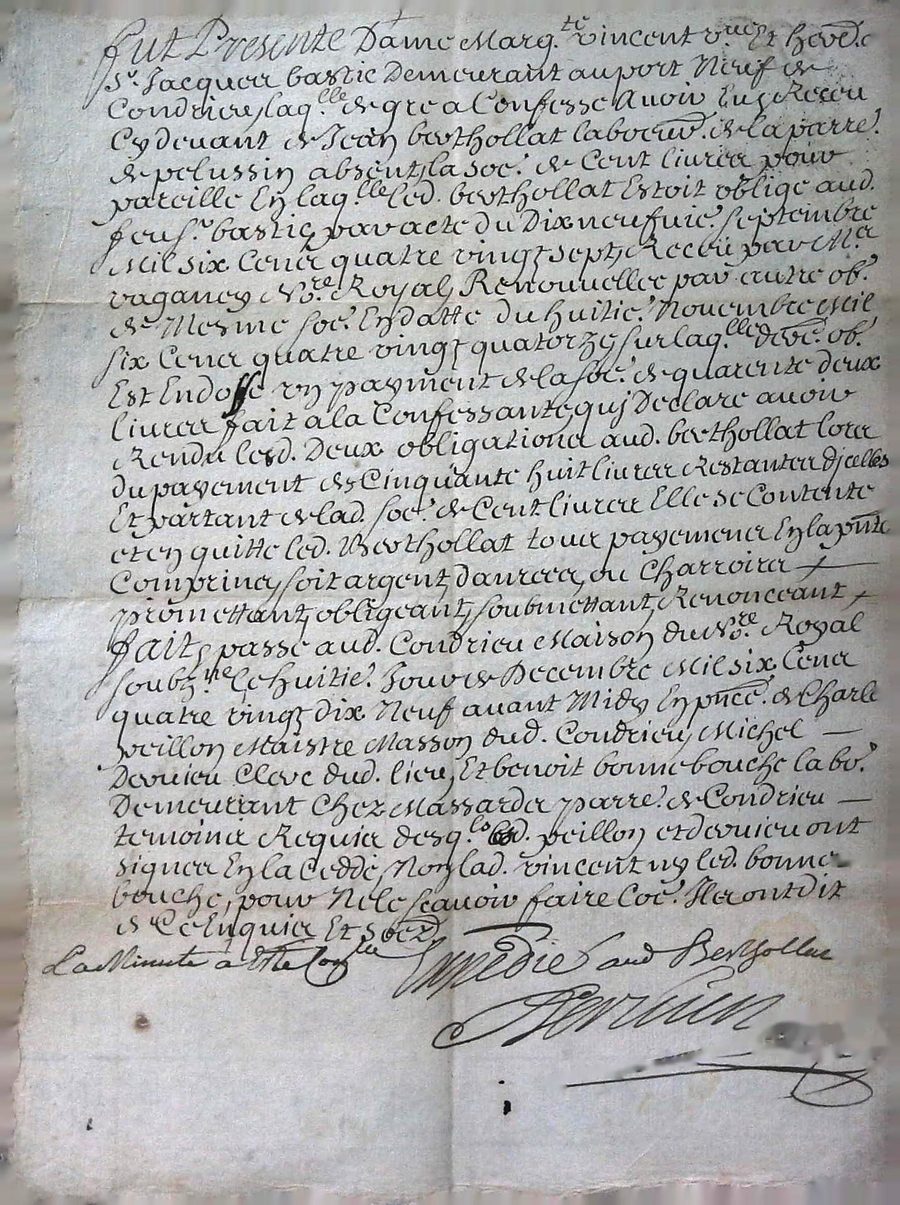 fut Presente Dame Marg.te vincent v.ve Et hered.e
S.r Jacques bastie Demeurant au port Neuf de
Condrieu, laq.lle de gre a Confesse Avoir Eu, & Receu
Cy devant de Jean berthollat laboeur. de la parre.
de pelussin absent, la soe. de Cent livres pour
pareille En laq.lle led. berthollat Estoit oblige aud.
feu s.r bastie par acte du Dix neufuie. septembre
Mil six Cens quatre vingt sept, Receu par M.e
vaganey No.re Royal, Renouvellee par autre ob.
de Mesme soe. En datte du huitie. Novembre Mil
six Cens quatre vingt quatorze, sur laq.lle de ob.
Est Endosse un payment de la soe. de quarente deux
livres fait a la Confessante quj Declare avoir
Rendu lesd. Deux obligations aud. berthollat lors
du payement de Cinquante huit livres Restantes djcelles
Et partant de lad. soe. de Cent livres Elle se Contente
et en quitte led. Berthollat tous payemens En la pnte
Comprins, soit argent, danrees, ou Charrois
promettant, obligeant, soubmettant, Renonceant
fait, & passe aud. Condrieu Maison du No.re Royal
soubz.ne le huitie. Jour de Decembre Mil six Cens
quatre vingt dix Neuf avant Midy En pnce. de Charle
peillon Maistre Masson dud. Condrieu, Michel
Dervieu Clerc dud. lieu, Et benoit bonnebouche labo.
Demeurant Chez Massardes parre. de Condrieu
temoins Requis desq.ls led. peillon et dervieu ont
signes En la Cedde, Non lad. vincent ny led. bonne
bouche, pour Ne le scavoir faire Coe. Ils ont dit
de Ce Enquis Et soed.
La Minute a Este Con.lle
Expedie aud Berthollat
Dervieu